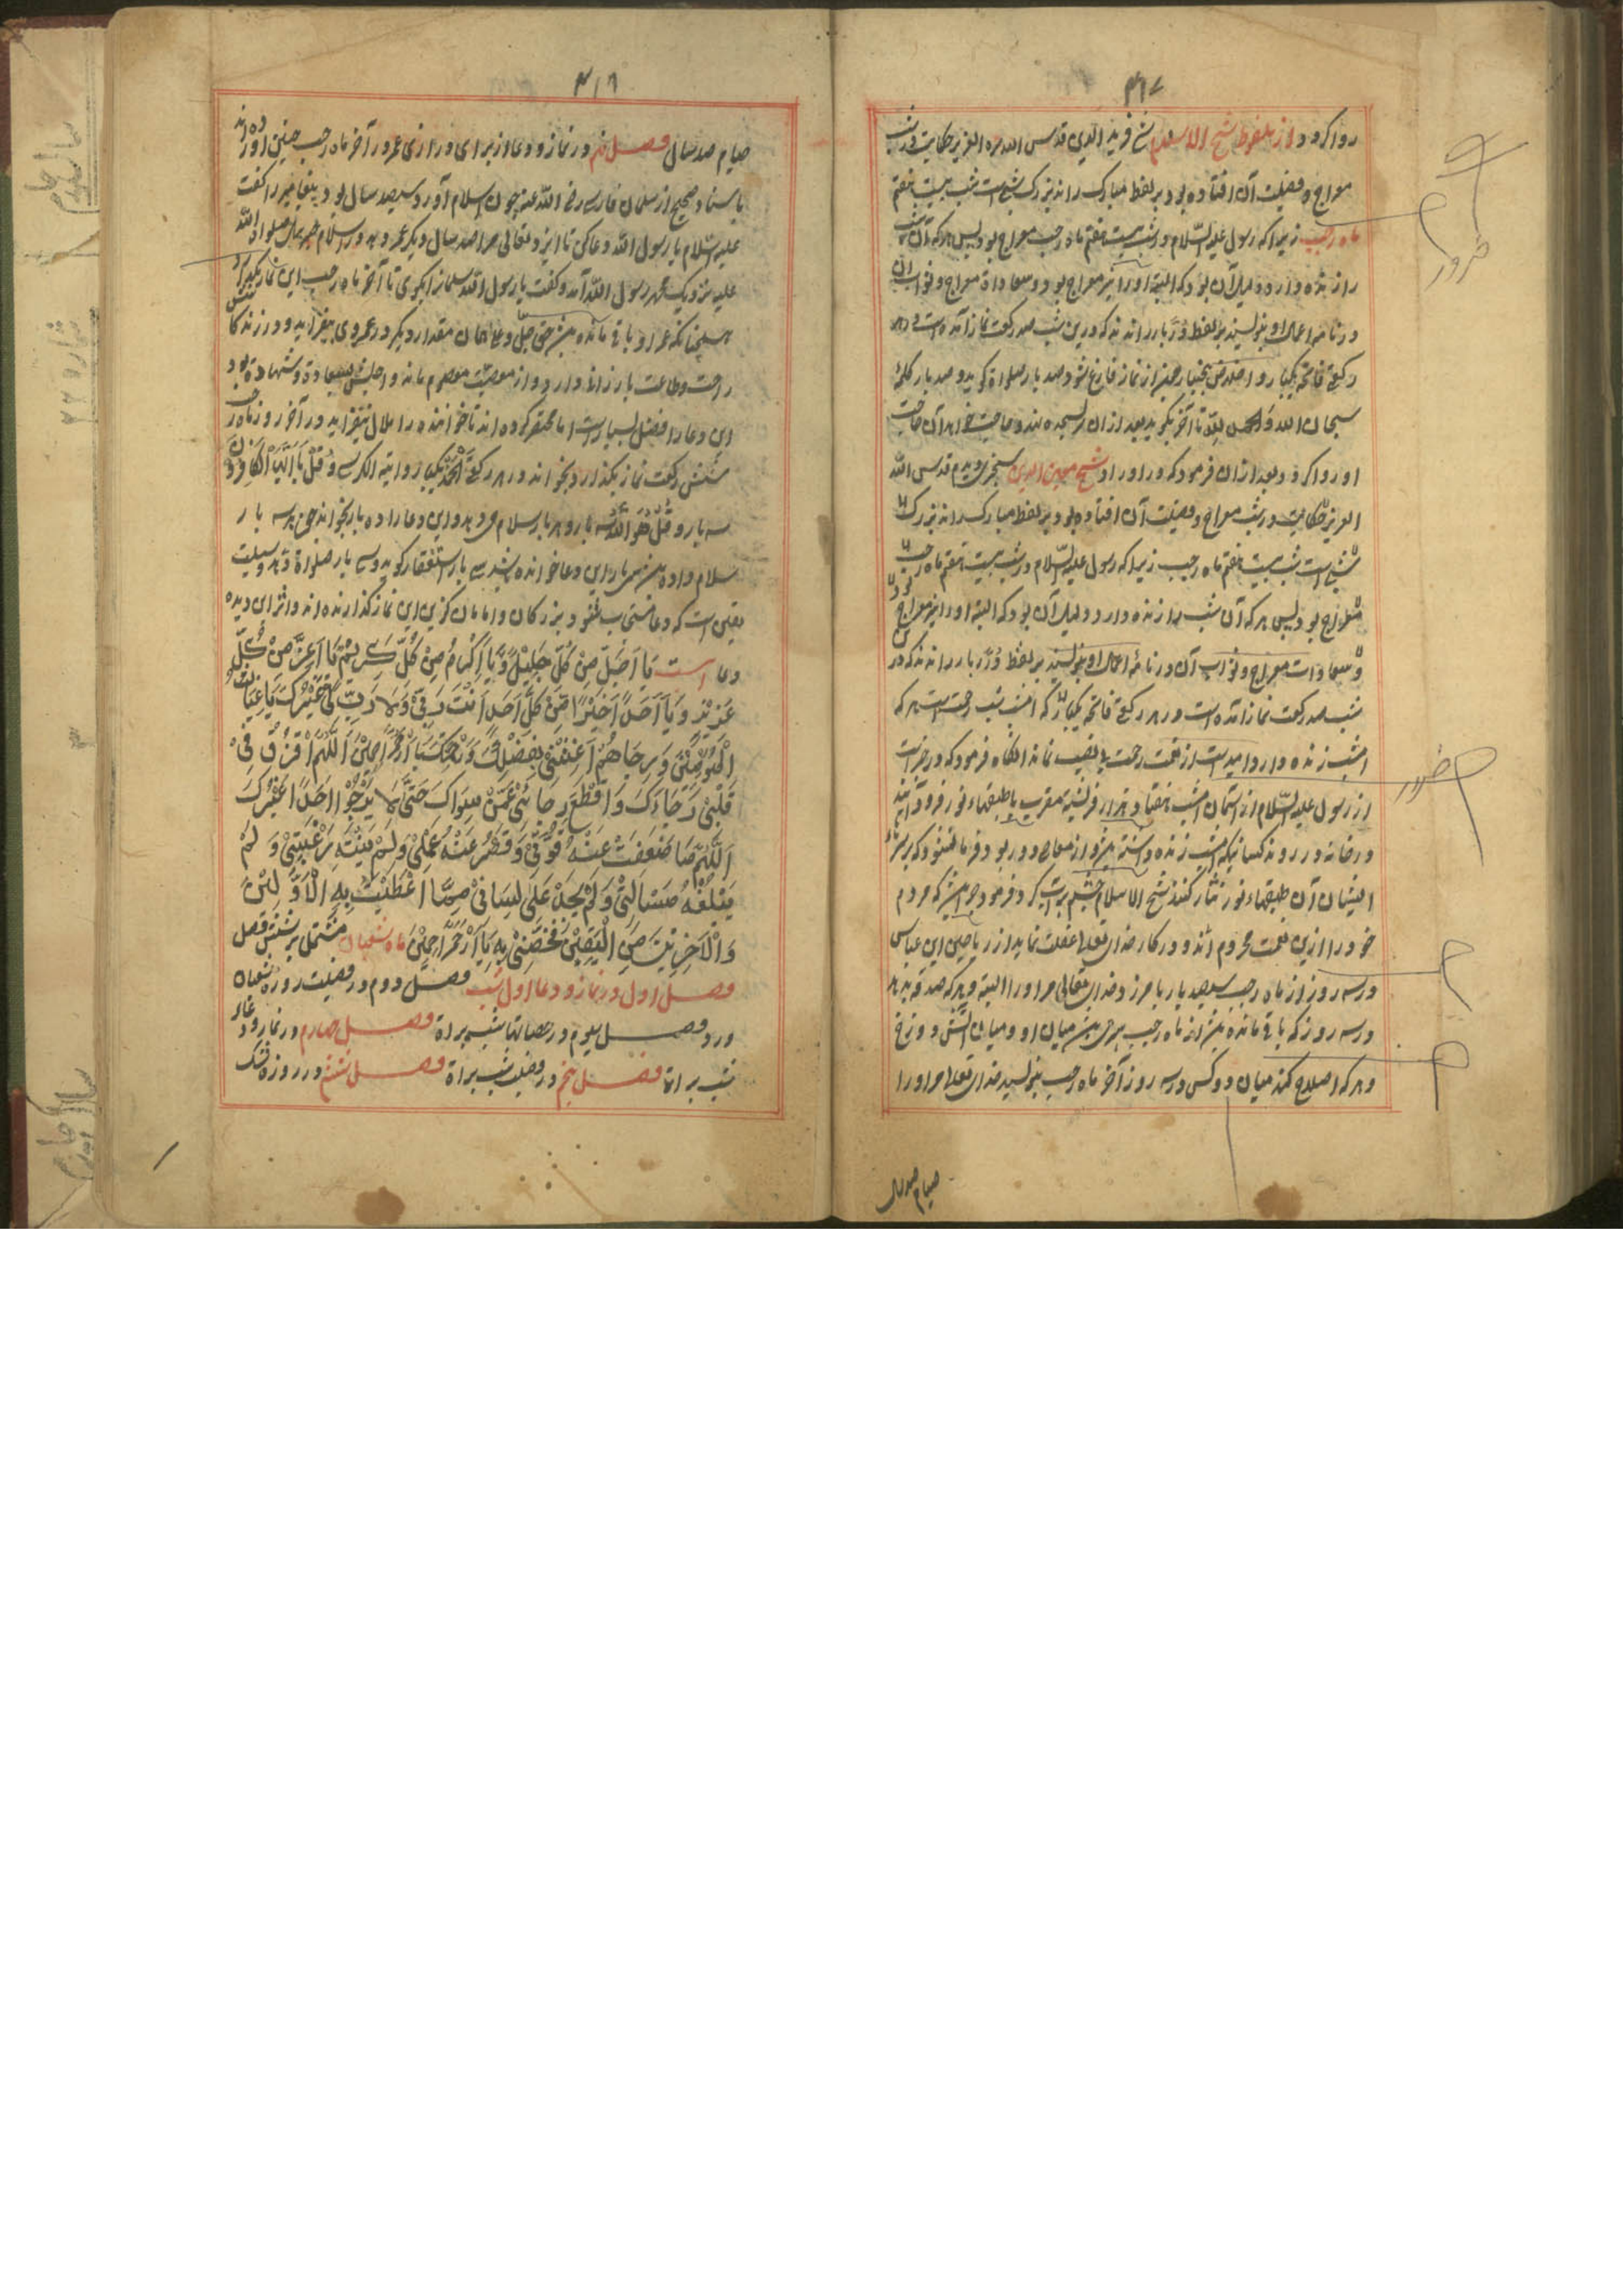 ۳۱۷
روا کرده از ملفوظ شیخ الاسلام شیخ فرید الدین قدس الله سره العزیز حکایت در شب
معراج و فضیلت آن افتاده بود بر لفظ مبارک راند بزرک شبی است شب بیست هفتم
ماه رجب زیرا که رسول علیه السلام در شب بیست هفتم ماه رجب معراج بود پس هر که آن شب
را زنده دارد دلیل آن بود که البته او را نیز معراج بود و سعادات معراج و ثواب آن
در نامه اعمال او بنویسند بر لفظ دُرّ بار راند که درین شب صد رکعت نماز آمده است در هر
رکعتی فاتحه یکبار و اخلاص پنجبار چون از نماز فارغ شود صد بار صلواة کوید و صد بار کلمه
سبحان الله و الحمد لله تا آخر بکوید بعد ازان سر بسجده نهد و حاجت خواهد آن حاجت
او روا کردد بعد ازان فرمود که در اوراد شیخ معین الدین سنجری دیدم قدس الله
العزیز حکایت در شب معراج و فضیلت آن افتاده بود بر لفظ مبارک راند بزرک
شبی است شب بیست هفتم ماه رجب زیرا که رسول علیه السلام در شب بیست هفتم ماه رجب
معراج بود پس هر که آن شب را زنده دارد دلیل آن بود که البته او را نیز معراج بود
و سعادات معراج و ثواب آن در نامه اعمال او بنویسند بر لفظ دُرّ بار راند که در
شب صد رکعت نماز آمده است در هر رکعتی فاتحه یکبار که امشب شب رحمت است هر که
امشب زنده دارد امید است از نعمت رحمت بی نصیب نماند انکاه فرمود که در خبر است
از رسول علیه السلام از آسمان امشب هفتاد هزار فرشته مقرب با طبقهاء نور فرود آیند
و خانه در روند کسانیکه امشب زنده داشته
ایشان آن طبقهاء نور نثار کنند شیخ الاسلام چشم پر آب کرد و فرمود که مردم
خود را ازین نعمت محروم اند و در کار خدای تعالی غفلت نماید از ریاحین ابن عباس
در سه روز از ماه رجب سیصد بار بامرزد خدای تعالی مر او را البته و هر که صدقه بدهد
در سه روز که باقی مانده از ماه رجب میان او و میان آتش دوزخ
و هر که اصلاح کند میان دو کس در سه روز آخر ماه رجب بنویسد خدای تعالی مر او را
صیام صد سال
ضرور
ضرور
۳۱۸
صیام صد سال فصل نهم در نماز و دعا از برای درازی عمر در آخر ماه رجب چنین آورده اند
باسناد صحیح از سلمان فارسی رضی الله عنه چون اسلام آورد سیصد سال بود پیغامبر را کفت
علیه السلام یا رسول الله دعا کن تا ایزد تعالی مرا صد سال دیکر عمر دهد در اسلام جبرئیل صلوات الله
علیه نزدیک مهتر رسول الله آمد و کفت یا رسول الله سلمانرا بکوی تا آخر ماه رجب این نماز بکذارد
هیچنانکه عمر او باقی مانده حق جل و علا همان مقدار دیکر در عمر وی بیفزاید و در زندکانی
راحت و طاعت بارزانی دارد و از معصیت معصوم ماند و اجلش بسعادت و شهادت بود
این دعا را فضل بسیار است اما مختصر کرده اند تا خواننده را ملال نیفزاید در آخر روز ماه رجب
شش رکعت نماز بکذارد بخواند در هر رکعتی الحمد یکبار و آیة الکرسی و قل یا ایها الکافرون
سه بار و قل هو الله سه بار و هر بار سلام دهد و این دعا را ده بار بخواند چون سه بار
سلام داده هر بار این دعا خوانده سی بار استغفار کوید و سی بار صلواة و وسیلت
یقین است که دعا مستجاب شود بزرکان و امامان کزین این نماز کذارنده اند و اثر این دیده
دعا است یَا اَجَلَّ مِنْ کُلِّ جَلِیْلٍ وَّ یَا اَکْرَمُ مِنْ کُلِّ کَرِیْمٍ یَا اَعَزَّ مِنْ کُلِّ
عَزِیْزٍ وَ یَا اَحَدًا خَیْرًا مِّنْ کُلِّ اَحَدٍ اَنْتَ رَبِّیْ وَ لَا رَبَّ لِیْ غَیْرُکَ یَا غِیَاثَ
الْمُؤْمِنِیْنَ وَ رَجَاهُمْ اَغِثْنِیْ بِفَضْلِکَ وَ رَحْمَتِکَ یَا اَرْحَمَ الرَّاحِمِیْنَ اَللّٰهُمَّ اقْذِفْ فِیْ
قَلْبِیْ رَجَاءَکَ وَ اقْطَعْ رَجَائِیْ عَمَّنْ سِوَاکَ حَتّٰی لَا یَرْجُوْا اَحَدًا غَیْرَکَ
اَللّٰهُمَّ مَا ضَعُفَتْ عَنْهُ قُوَّتِیْ وَ قَصُرَ عَنْهُ عَمَلِیْ وَ لَمْ یَنْتَهِ رَغْبَتِیْ وَ لَمْ
یَبْلُغْهُ مَسْأَلَتِیْ وَ لَمْ یَجْرِ عَلٰی لِسَانِیْ مِمَّا اَعْطَیْتَ بِهِ الْاَوَّلِیْنَ
وَ الْآخِرِیْنَ مِنَ الْیَقِیْنِ فَخُصَّنِیْ بِهِ یَا اَرْحَمَ الرَّاحِمِیْنَ ماه شعبان مشتمل بر شش فصل
فصل اول در نماز و دعا اول شب فصل دوم در فضیلت روزه شعبان
و درود فصل سیوم در خصالتها شب براة فصل چهارم در نماز و دعا
شب براة فصل پنجم در فضیلت شب براة فصل ششم در روزه شک